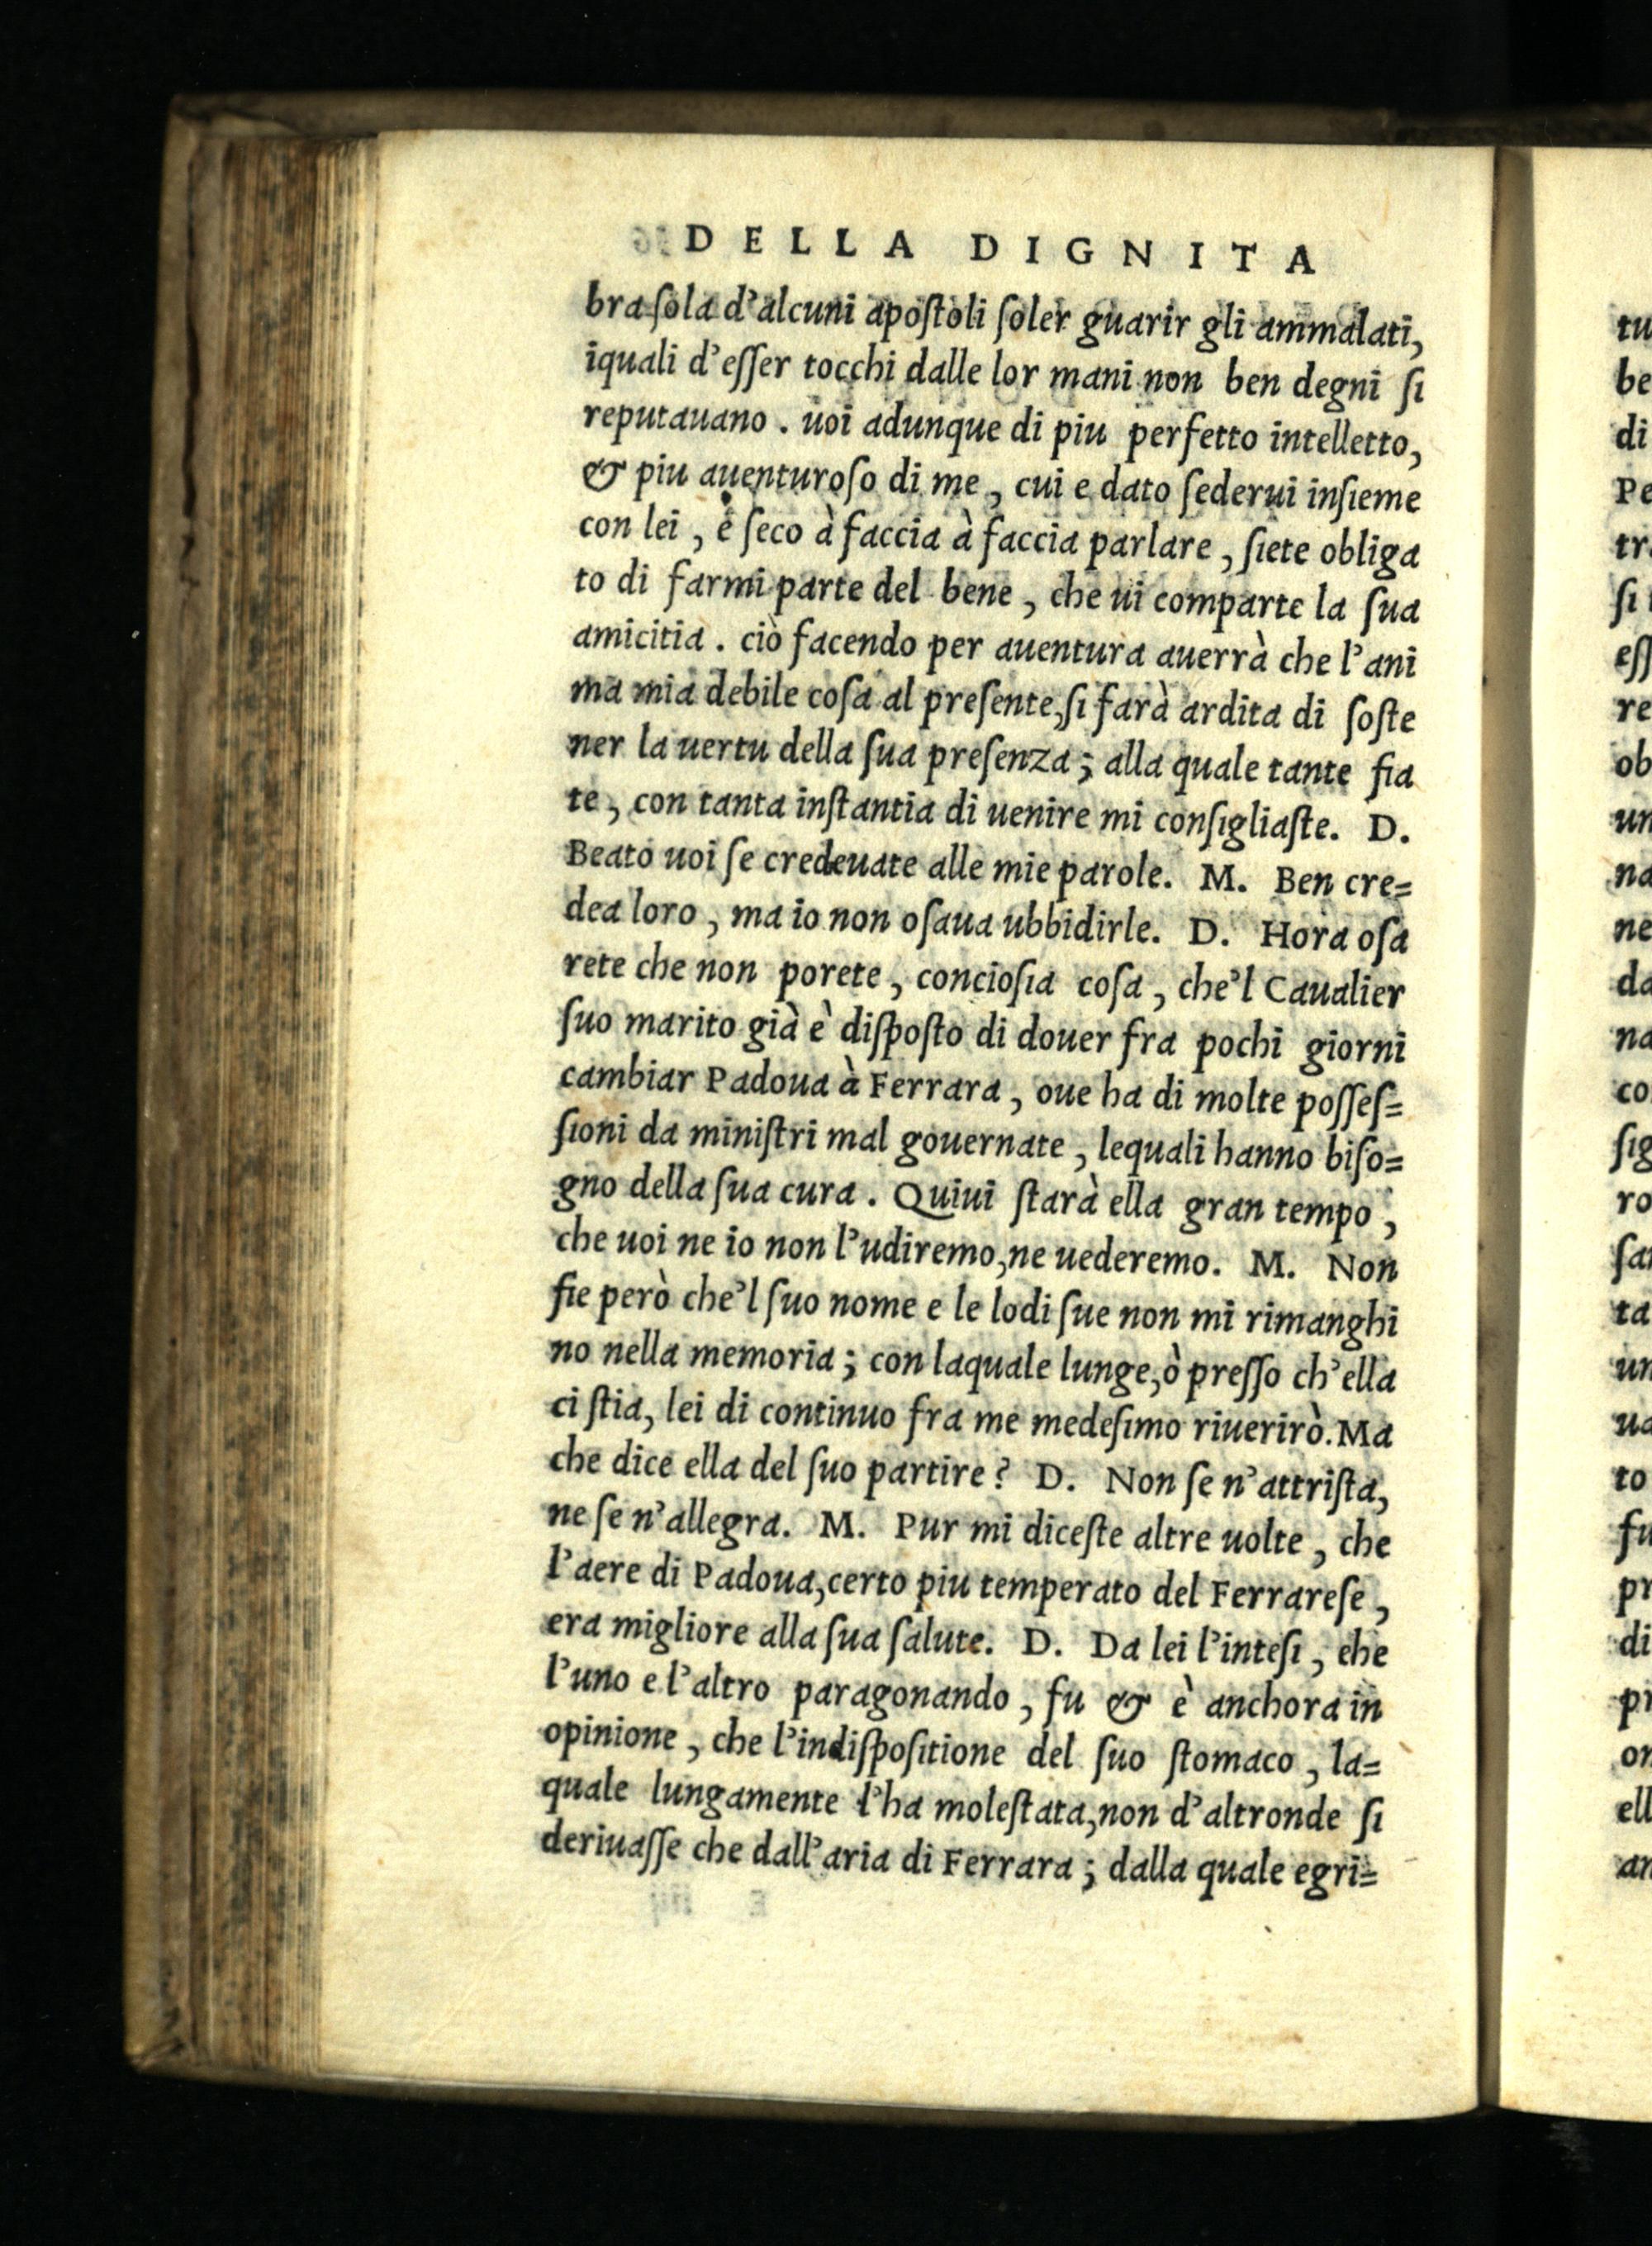 DELLA DIGNITA
bra ſola d'alcuni apoſtoli ſoler guarir gli ammalati,
iquali d'eſſer tocchi dalle lor mani non ben degni ſi
reputauano. uoi adunque di piu perfetto intelletto,
& piu auenturoſo di me, cui e dato ſederui inſieme
con lei, è ſeco à faccia à faccia parlare, ſiete obliga
to di farmi parte del bene, che ui comparte la ſua
amicitia. ciò facendo per auentura auerrà che l'ani
ma mia debile coſa al preſente, ſi farà ardita di ſoſte
ner la uertu della ſua preſenza; alla quale tante fia
te, con tanta inſtantia di uenire mi conſigliaſte. D.
Beato uoi ſe credeuate alle mie parole. M. Ben cre=
dea loro, ma io non oſaua ubbidirle. D. Hora oſa
rete che non porete, concioſia coſa, che'l Caualier
ſuo marito già è diſpoſto di douer fra pochi giorni
cambiar Padoua à Ferrara, oue ha di molte poſſeſ=
ſioni da miniſtri mal gouernate, lequali hanno biſo=
gno della ſua cura. Quiui ſtarà ella gran tempo,
che uoi ne io non l'udiremo, ne uederemo. M. Non
fie però che'l ſuo nome e le lodi ſue non mi rimanghi
no nella memoria; con laquale lunge, ò preſſo ch'ella
ci ſtia, lei di continuo fra me medeſimo riuerirò. Ma
che dice ella del ſuo partire? D. Non ſe n'attriſta,
ne ſe n'allegra. M. Pur mi diceſte altre uolte, che
l'aere di Padoua, certo piu temperato del Ferrareſe,
era migliore alla ſua ſalute. D. Da lei l'inteſi, che
l'uno e l'altro paragonando, fu & è anchora in
opinione, che l'indiſpoſitione del ſuo ſtomaco, la=
quale lungamente l'ha moleſtata, non d'altronde ſi
deriuaſſe che dall'aria di Ferrara; dalla quale egri=
tu
be
di
Pe
tr
ſi
eſſ
re
ob
un
na
ne
da
na
co
ſig
ro
ſa
ta
un
ua
to
fu
pr
di
pr
on
ell
an